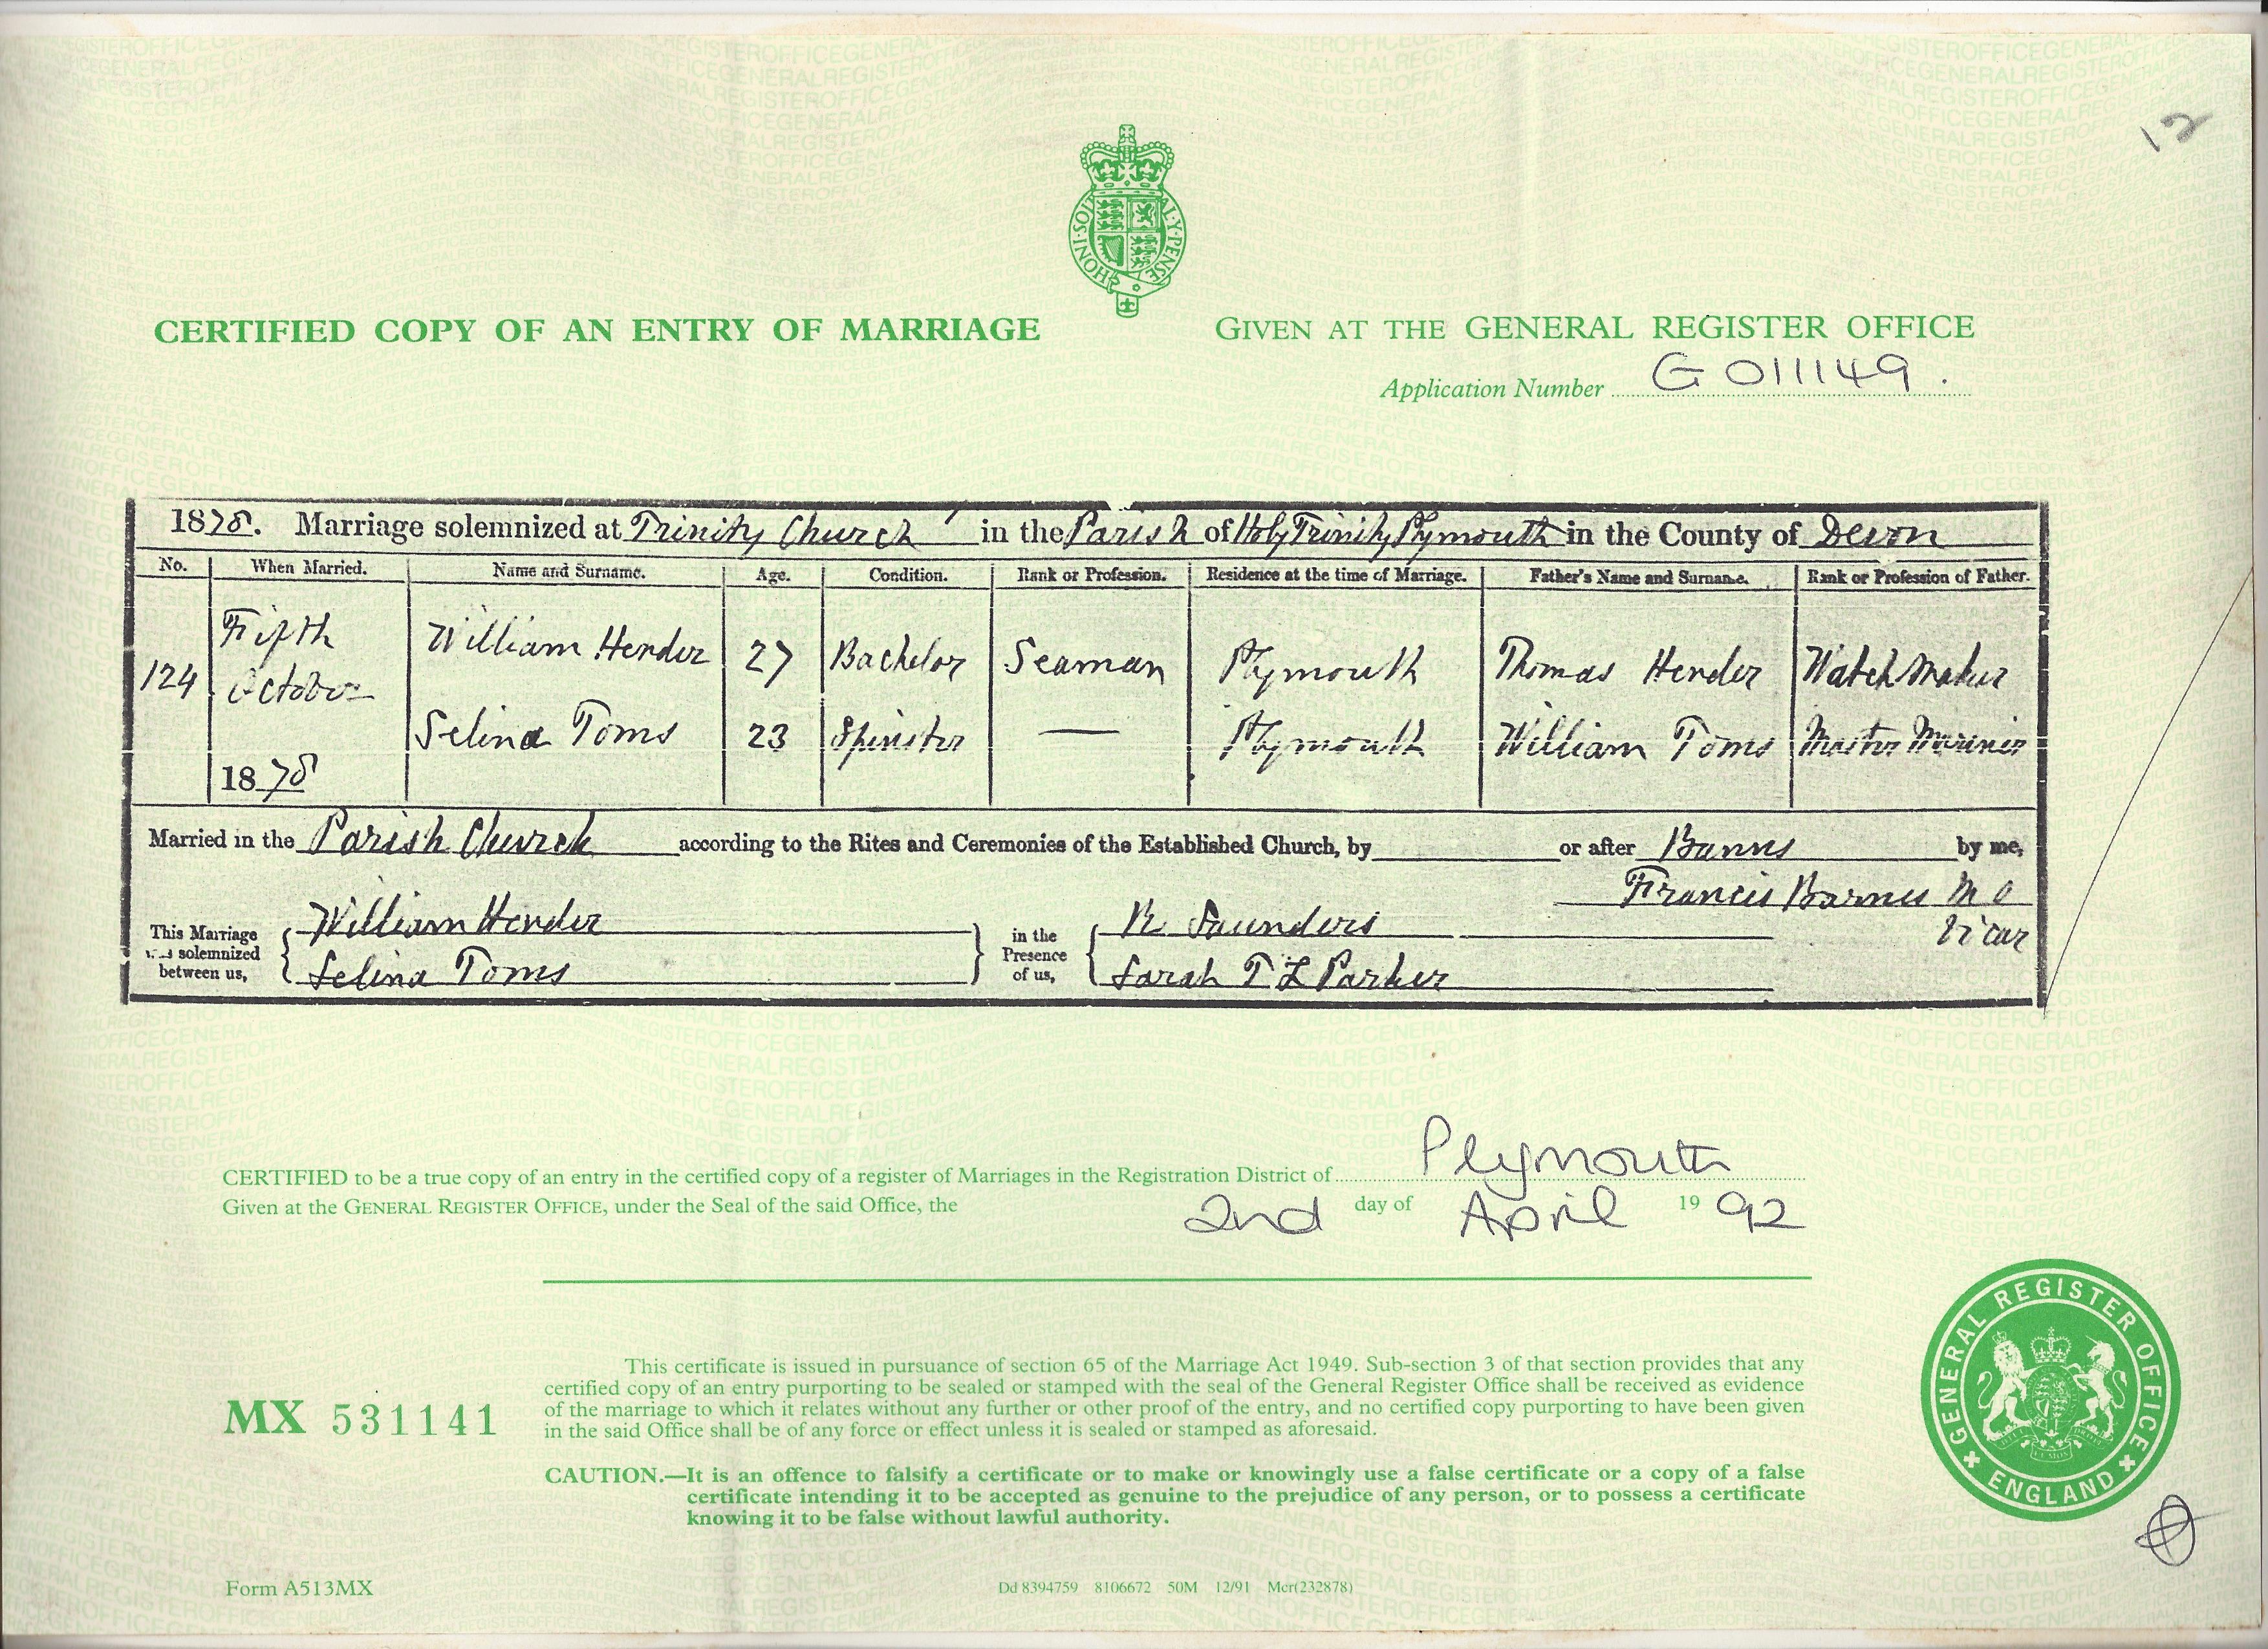 12
HONI·SOI
AL·Y·PENSE
CERTIFIED COPY OF AN ENTRY OF MARRIAGE
GIVEN AT THE GENERAL REGISTER OFFICE
Application Number G 011149.
1878. Marriage solemnized at Trinity Church in the Parish of Holy Trinity Plymouth in the County of Devon
No. When Married. Name and Surname. Age. Condition. Rank or Profession. Residence at the time of Marriage. Father's Name and Surname. Rank or Profession of Father.
124 Fifth October 1878 William Hender 27 Bachelor Seaman Plymouth Thomas Hender Watch Maker
Selina Toms 23 Spinster — Plymouth William Toms Master Mariner
Married in the Parish Church according to the Rites and Ceremonies of the Established Church, by or after Banns by me,
Francis Barnes
Vicar
This Marriage was solemnized between us, William Hender
Selina Toms
in the Presence of us, R. Saunders
Sarah T L Parker
CERTIFIED to be a true copy of an entry in the certified copy of a register of Marriages in the Registration District of Plymouth
Given at the GENERAL REGISTER OFFICE, under the Seal of the said Office, the 2nd day of April 1992
This certificate is issued in pursuance of section 65 of the Marriage Act 1949. Sub-section 3 of that section provides that any
certified copy of an entry purporting to be sealed or stamped with the seal of the General Register Office shall be received as evidence
of the marriage to which it relates without any further or other proof of the entry, and no certified copy purporting to have been given
in the said Office shall be of any force or effect unless it is sealed or stamped as aforesaid.
MX 531141
CAUTION.—It is an offence to falsify a certificate or to make or knowingly use a false certificate or a copy of a false
certificate intending it to be accepted as genuine to the prejudice of any person, or to possess a certificate
knowing it to be false without lawful authority.
GENERAL REGISTER OFFICE
ENGLAND
Form A513MX
Dd 8394759 8106672 50M 12/91 Mcr(232878)